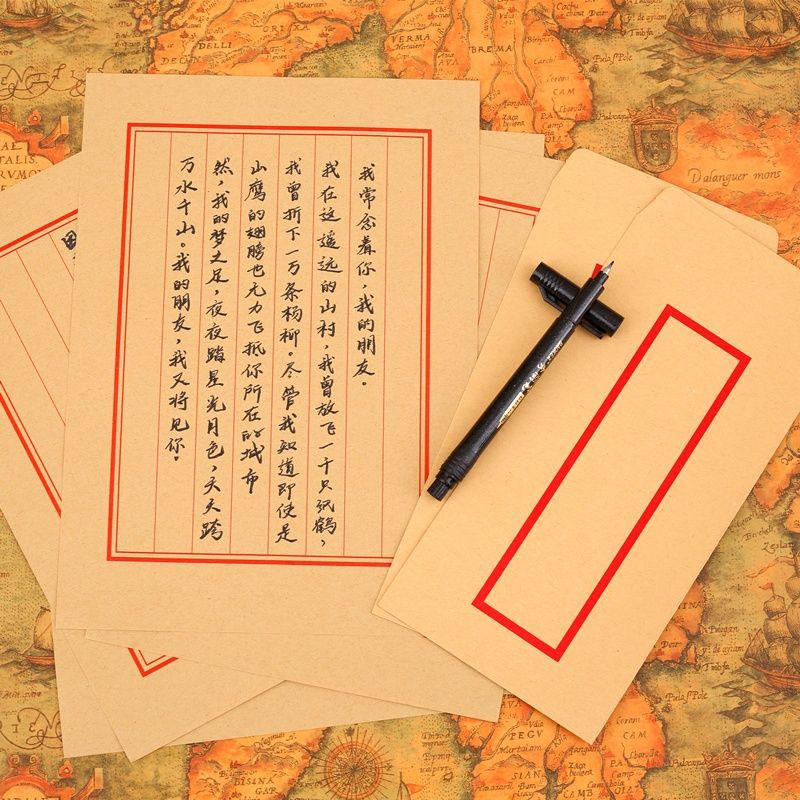 我常念着你，我的朋友。
我在这遥远的山村，我曾放飞一千只纸鹤，
我曾折下一万条杨柳。尽管我知道即使是
山鹰的翅膀也无力飞抵你所在的城市
然，我的梦之足，夜夜踏星光月色，天天跨
万水千山。我的朋友，我又将见你。
ORIXA
DELLI
VERMA
BREMA
Dalanguer mons
PEGV
BISINA
GAR